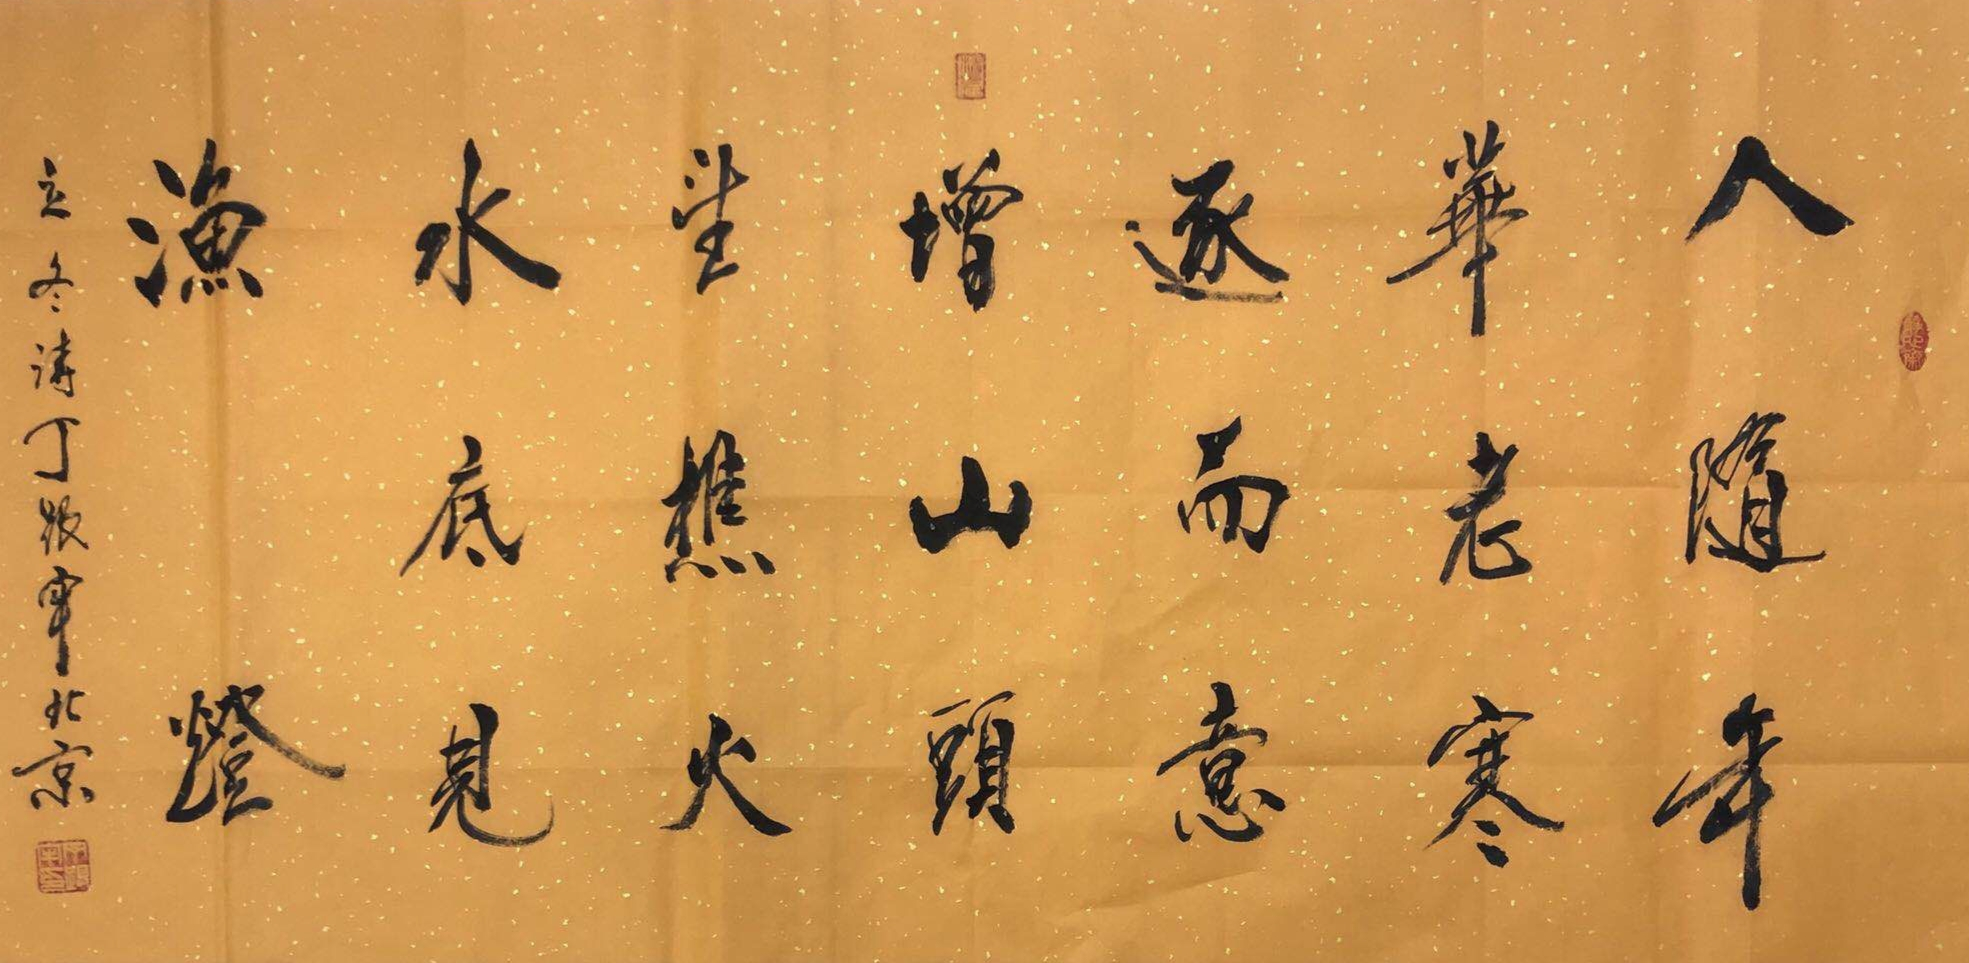 人隨年
華老寒
逐雨意
增山頭
望樵火
水底見
漁燈
立冬詩丁振军北京